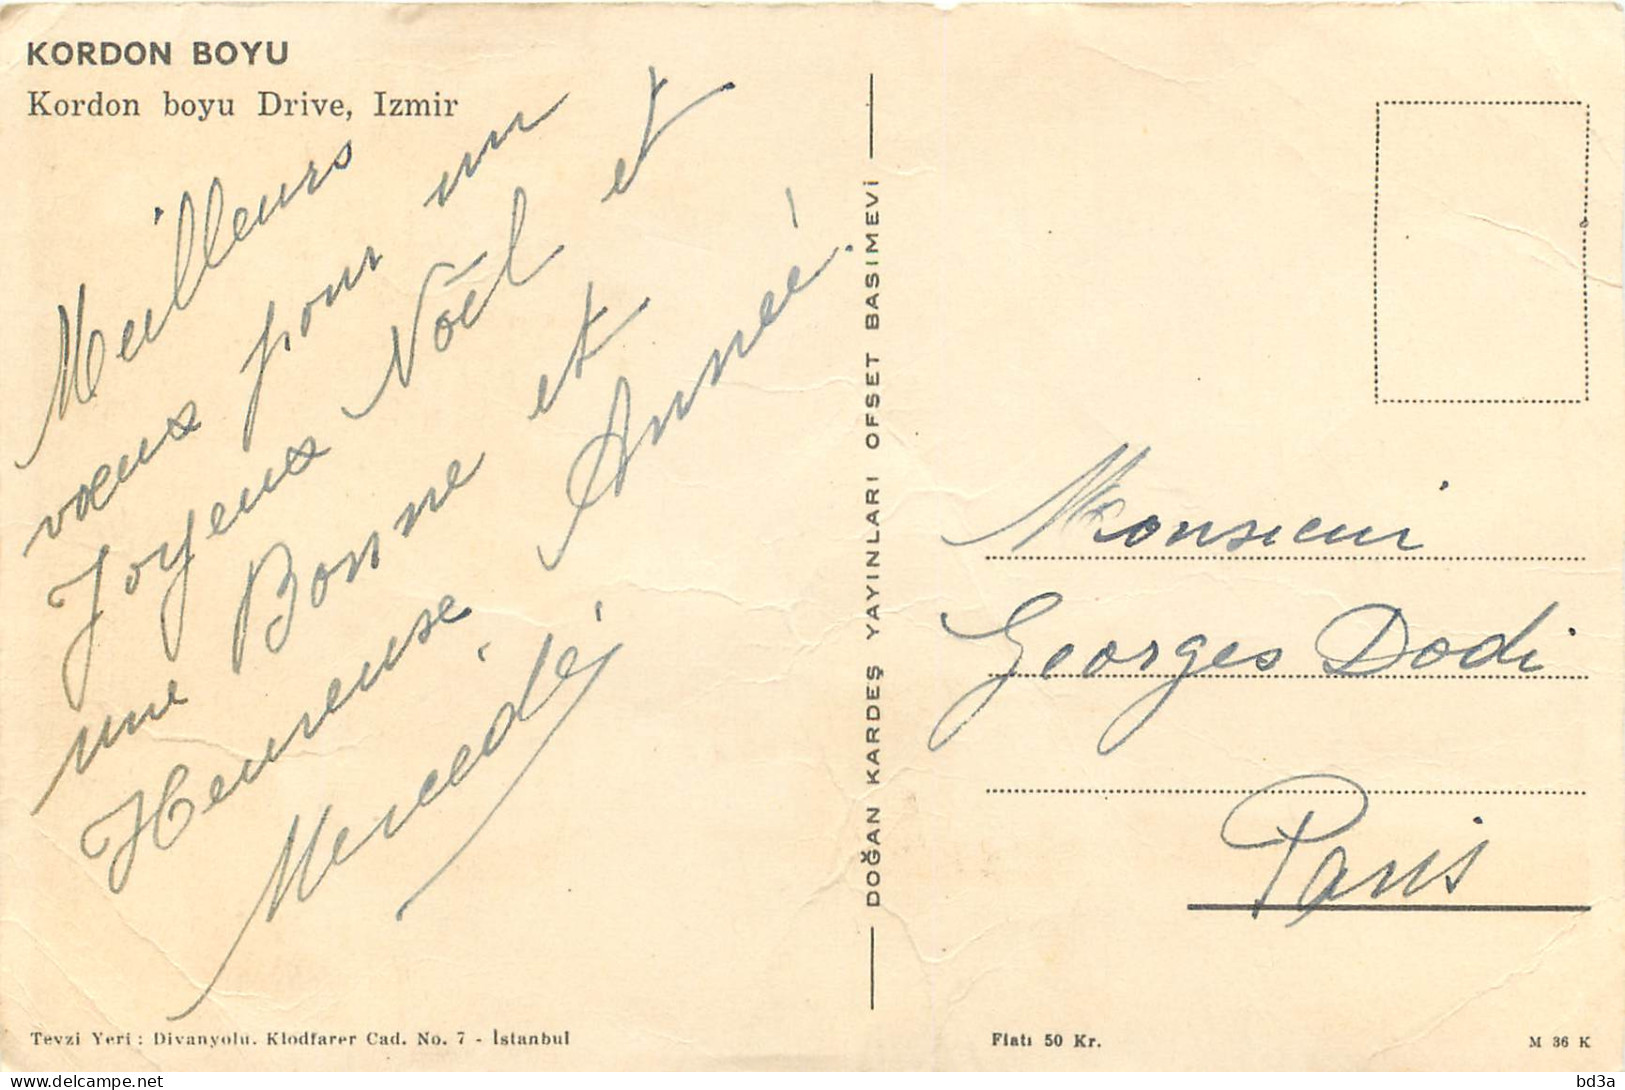 KORDON BOYU
Kordon boyu Drive, Izmir
Meilleurs
vœux pour un
Joyeux Noël et
une Bonne et
Heureuse Année.
Mercédé
DOĞAN KARDEŞ YAYINLARI OFSET BASIMEVİ
Monsieur
Georges Dodi
Paris
Tevzi Yeri: Divanyolu. Klodfarer Cad. No. 7 - İstanbul
Fiatı 50 Kr.
M 36 K
bd3a